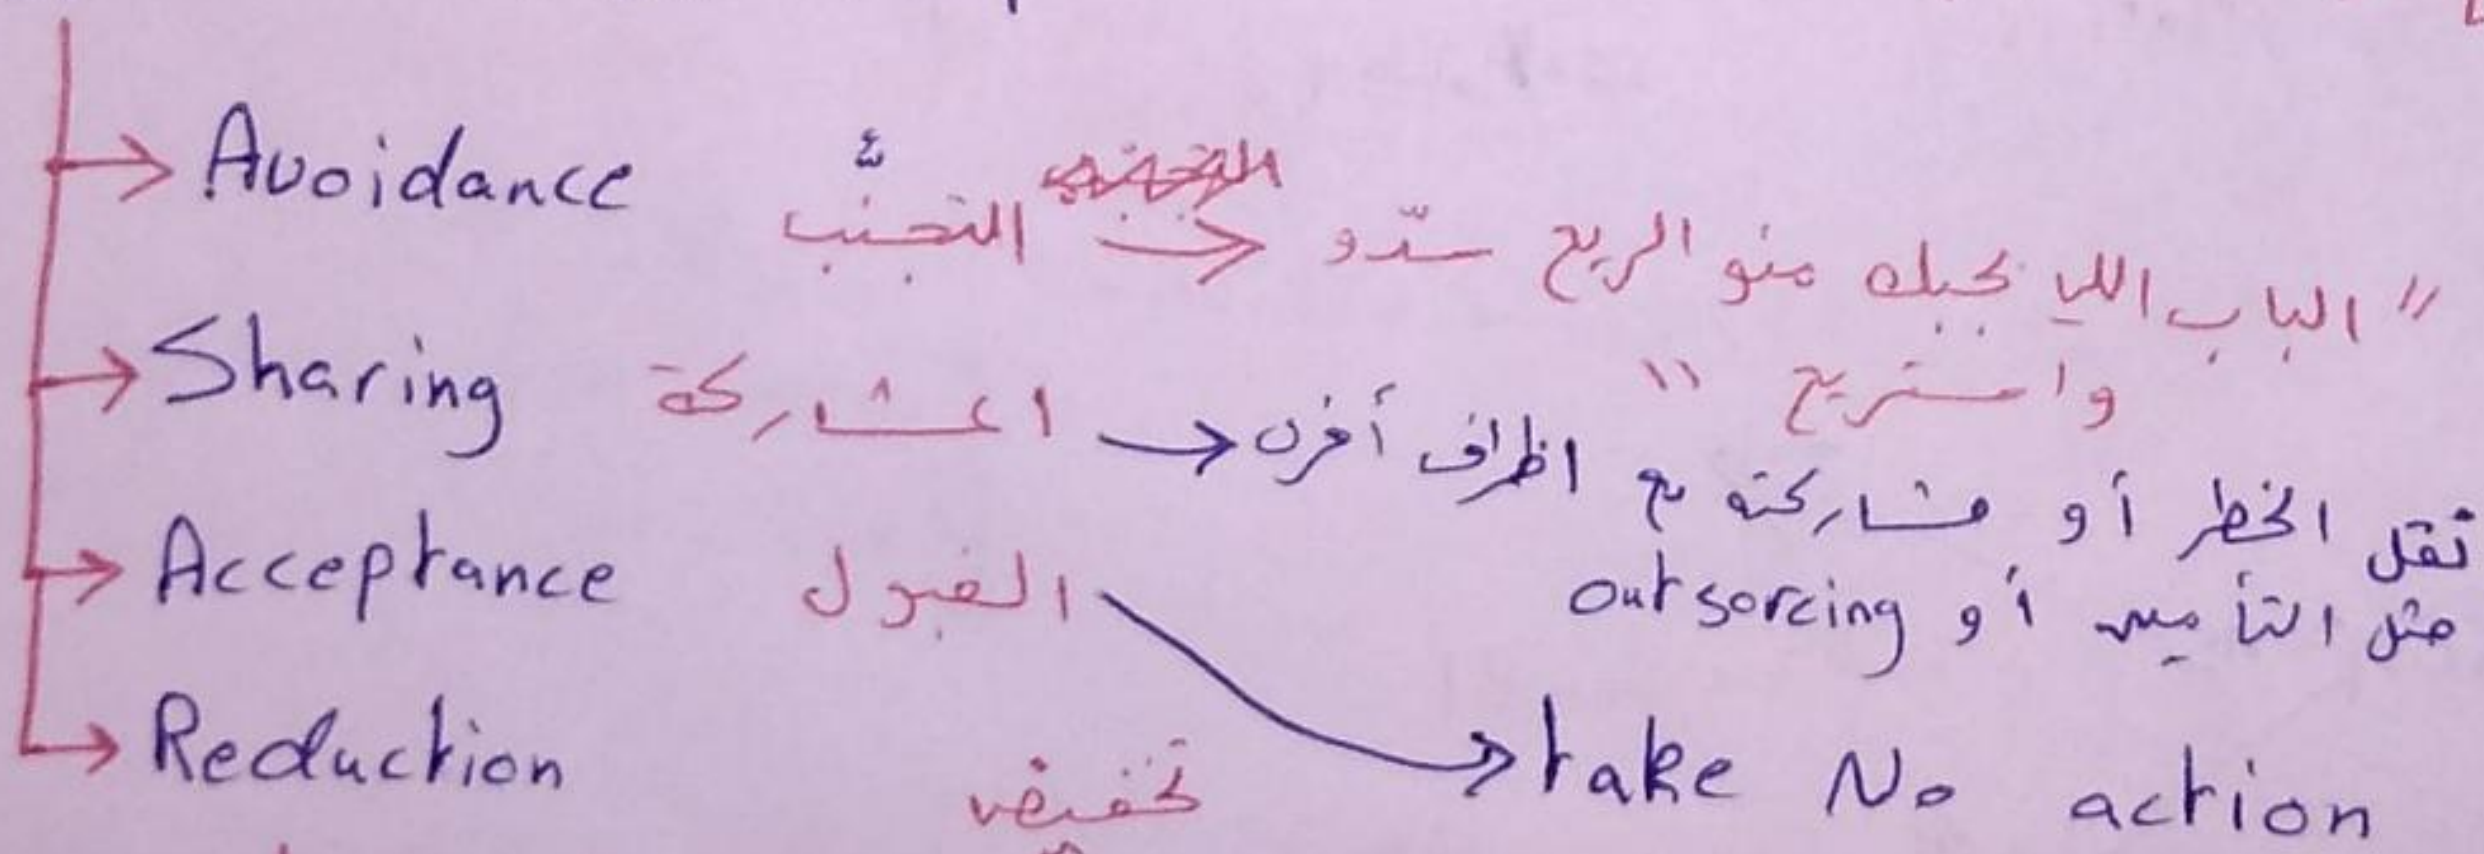 Avoidance التجنُّب → "الباب اللي يجيك منو الريح سدّو
واستريح"
Sharing المشاركة → نقل الخطر أو مشاركته مع اطراف أخرى
مثل التأمين أو outsorcing
Acceptance القبول → take No action
Reduction تخفيض